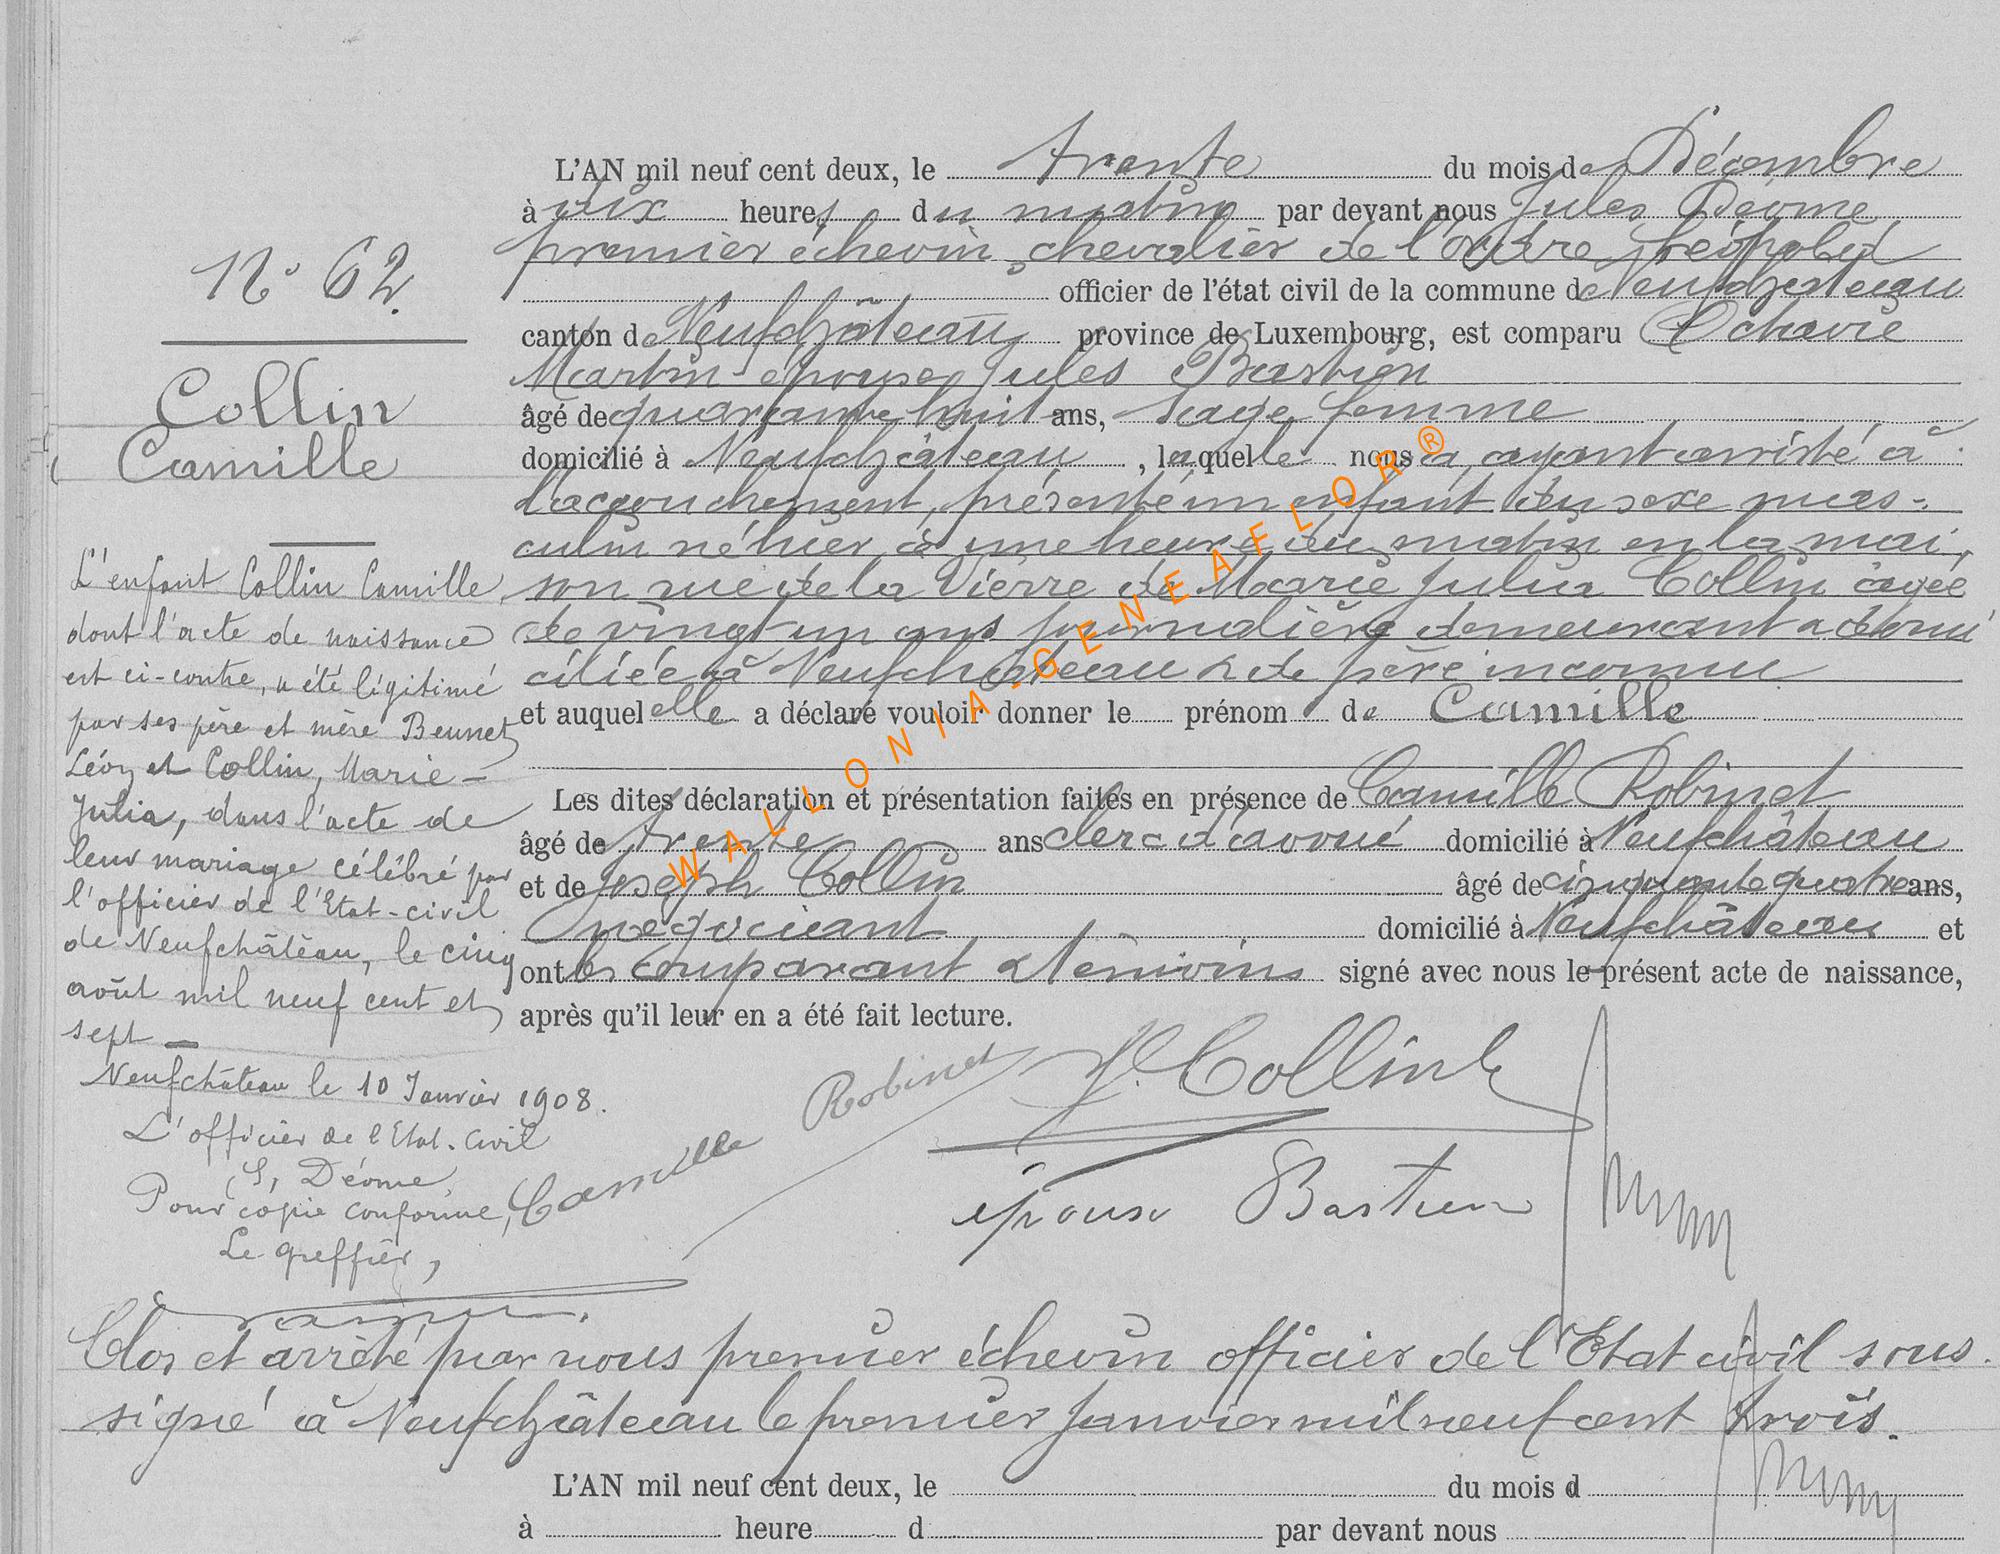 N° 62.
Collin
Camille
L'AN mil neuf cent deux, le trente du mois de Décembre
à dix heures du matin par devant nous Jules Déome
premier échevin, chevalier de l'ordre Léopold
officier de l'état civil de la commune de Neufchateau
canton de Neufchâteau province de Luxembourg, est comparu Octavie
Martin épouse Jules Bastien
âgé de quarante huit ans, sage femme
domicilié à Neufchâteau, laquelle nous a, ayant assisté à
l'accouchement, présenté un enfant du sexe mas-
culin né hier à une heure du matin en la mai
son rue de la Vierre de Marie Julia Collin âgée
de vingt un ans journalière demeurant & domi
ciliée à Neufchâteau & de père inconnu
et auquel elle a déclaré vouloir donner le prénom de Camille
Les dites déclaration et présentation faites en présence de Camille Robinet
âgé de trente ans clerc d'avoué domicilié à Neufchâteau
et de Joseph Collin âgé de cinquante quatre ans,
négociant domicilié à Neufchâteau et
ont les comparant & témoins signé avec nous le présent acte de naissance,
après qu'il leur en a été fait lecture.
L'enfant Collin Camille,
dont l'acte de naissance
est ci-contre, a été légitimé
par ses père et mère Beunet
Léon et Collin, Marie-
Julia, dans l'acte de
leur mariage célébré par
l'officier de l'Etat-civil
de Neufchâteau, le cinq
août mil neuf cent et
sept
Neufchâteau le 10 Janvier 1908.
L'officier de l'Etat-Civil
(S, Déome
Pour copie conforme,
Le greffier,
Camille Robinet
J. Collin
épouse Bastien
Clos et arrêté par nous premier échevin officier de l'Etat civil sous.
signé à Neufchâteau le premier janvier mil neuf cent trois.
L'AN mil neuf cent deux, le du mois d
à heure d par devant nous
WALLONIA-GENEAFLOR®